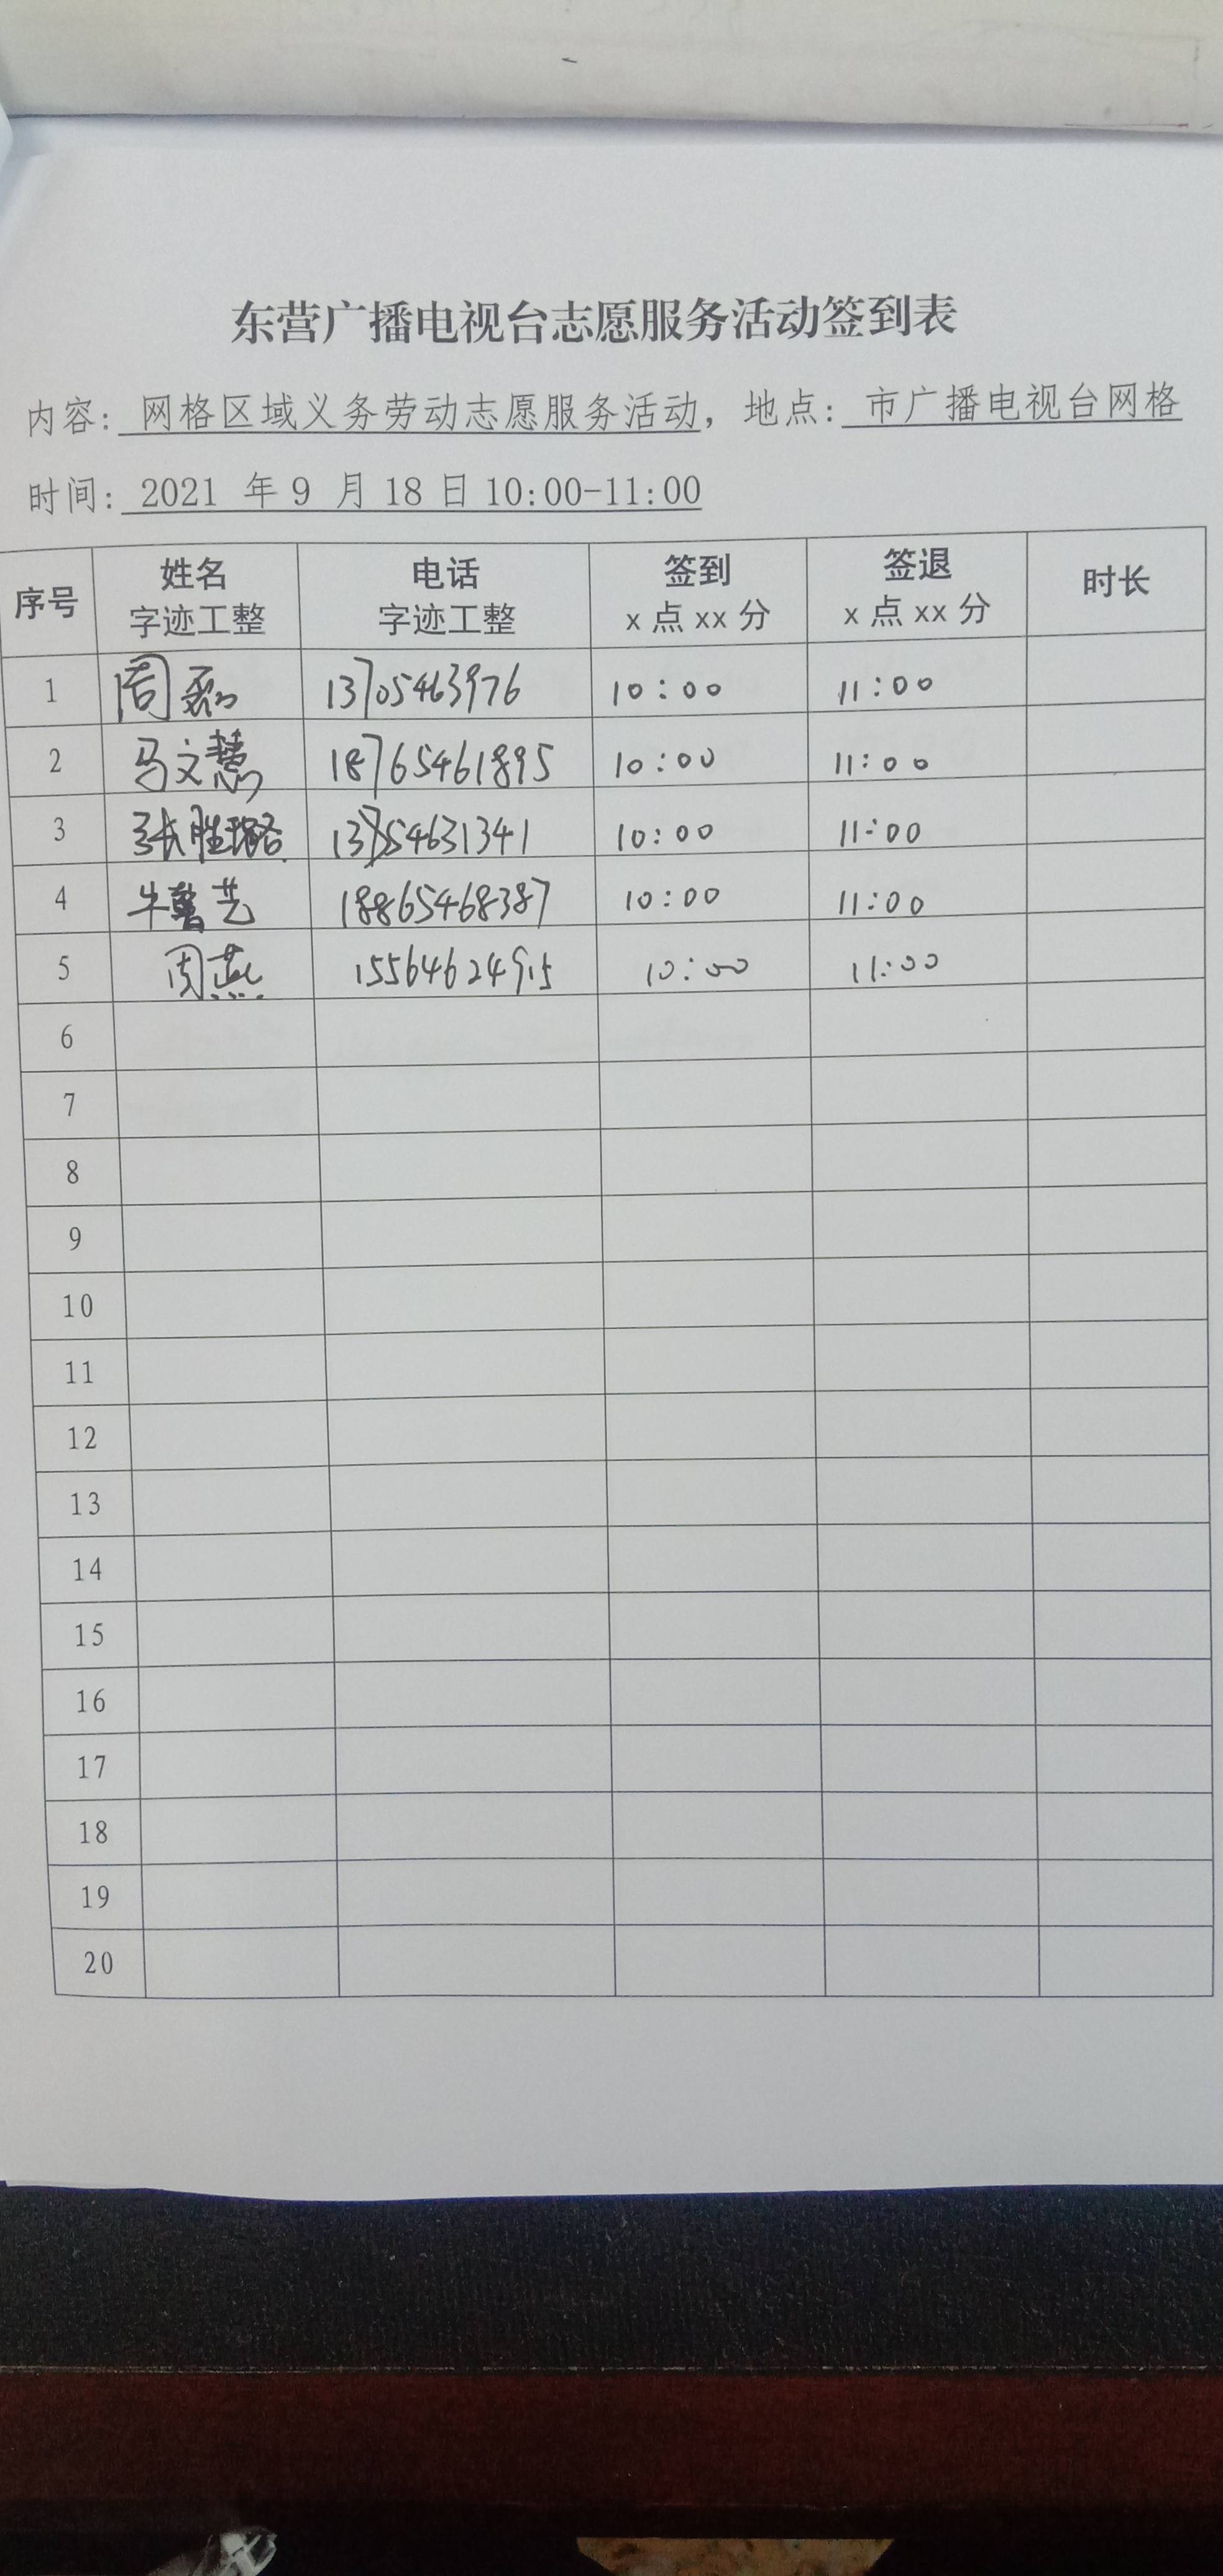 东营广播电视台志愿服务活动签到表
内容: 网格区域义务劳动志愿服务活动, 地点: 市广播电视台网格
时间: 2021 年 9 月 18 日 10:00-11:00
序号 姓名 字迹工整 电话 字迹工整 签到 x 点 xx 分 签退 x 点 xx 分 时长
1 周磊 13705463976 10:00 11:00
2 马文慧 18765461895 10:00 11:00
3 张胜璐 10:00 11:00
4 牛 艺 18865468387 10:00 11:00
5 周燕 15564624915 10:00 11:00
6
7
8
9
10
11
12
13
14
15
16
17
18
19
20